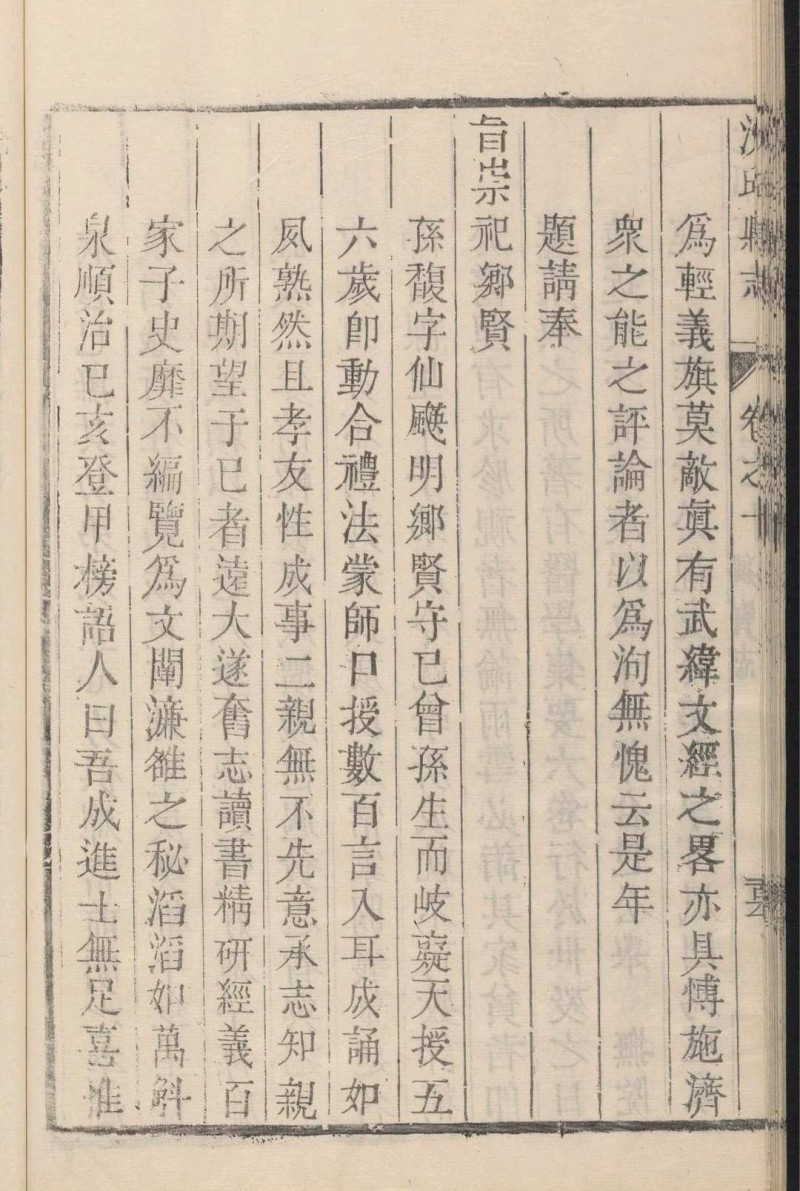 洧川縣志 卷之十
為輕義旗莫敵眞有武緯文經之畧亦具博施濟
衆之能之評論者以為洵無愧云是年
題請奉
旨崇祀鄉賢
孫馥字仙飈明鄉賢守已曾孫生而岐嶷天授五
六歲卽動合禮法蒙師口授數百言入耳成誦如
夙熟然且孝友性成事二親無不先意承志知親
之所期望于已者遠大遂奮志讀書精研經義百
家子史靡不編覽為文闡濂雒之秘滔滔如萬斛
泉順治已亥登甲榜語人曰吾成進士無足喜惟